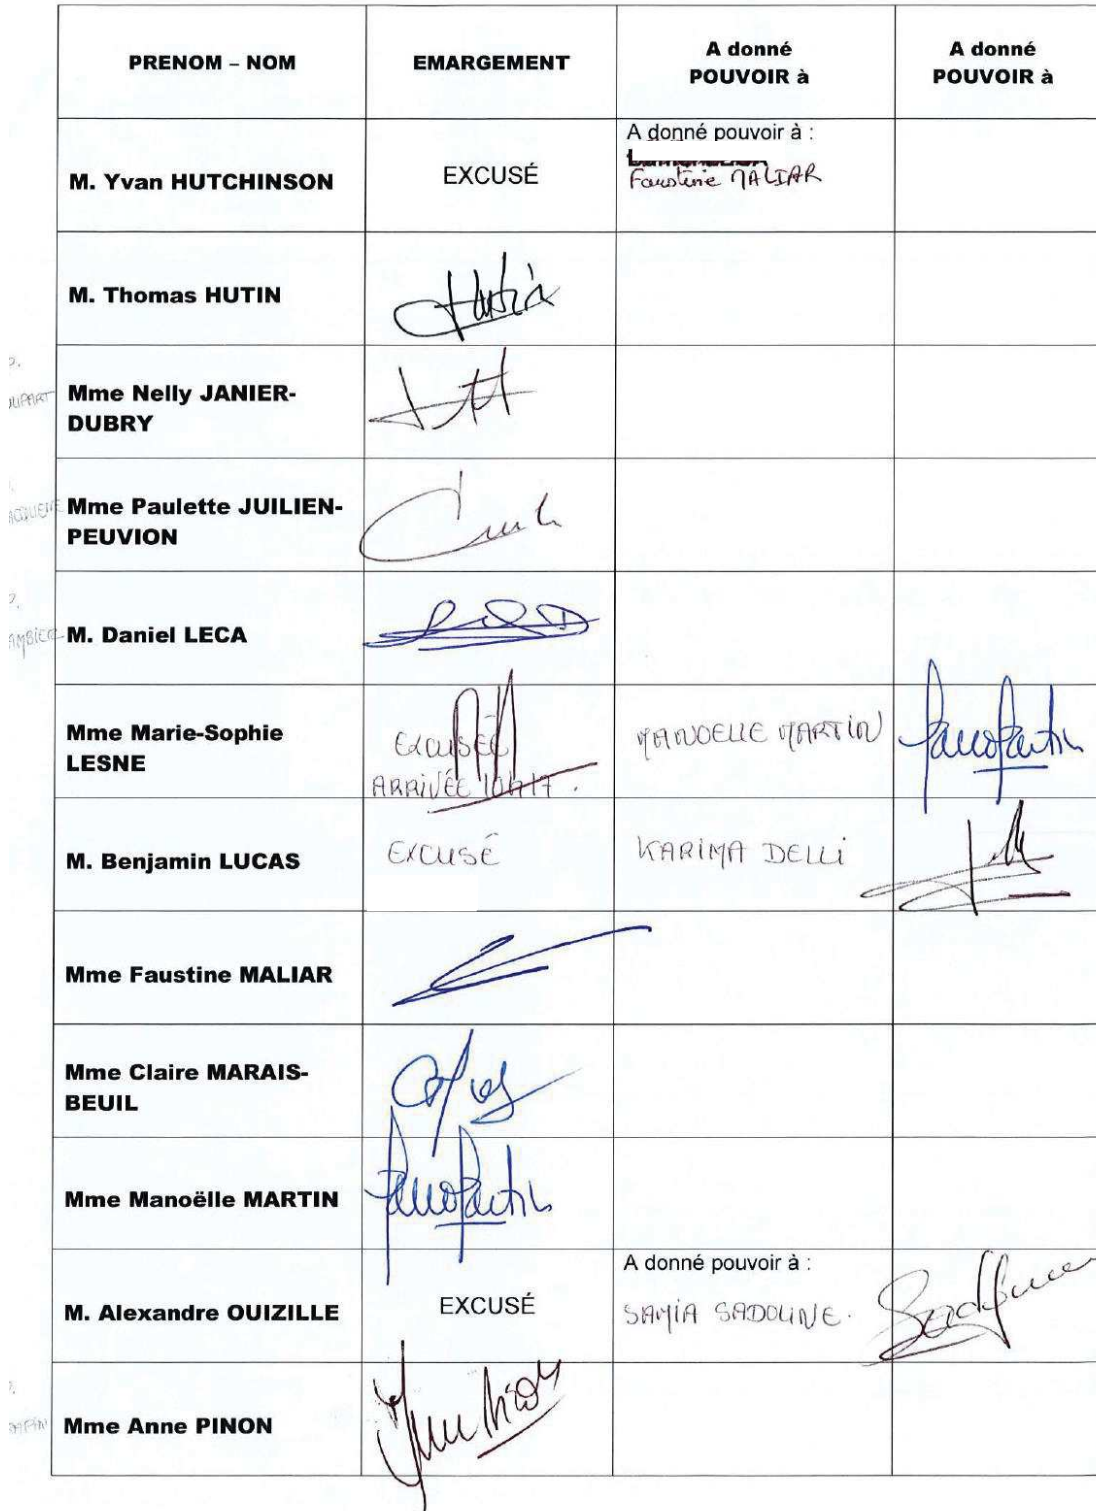 PRENOM – NOM
EMARGEMENT
A donné
POUVOIR à
A donné
POUVOIR à
M. Yvan HUTCHINSON
EXCUSÉ
A donné pouvoir à :
Faustine MALIAR
M. Thomas HUTIN
Hutin
Mme Nelly JANIER-
DUBRY
Mme Paulette JUILIEN-
PEUVION
M. Daniel LECA
Mme Marie-Sophie
LESNE
EXCUSÉE
ARRIVÉE 10H17.
MANOELLE MARTIN
M. Benjamin LUCAS
EXCUSÉ
KARIMA DELLI
Mme Faustine MALIAR
Mme Claire MARAIS-
BEUIL
Mme Manoëlle MARTIN
M. Alexandre OUIZILLE
EXCUSÉ
A donné pouvoir à :
SAMIA SADOUNE.
Mme Anne PINON